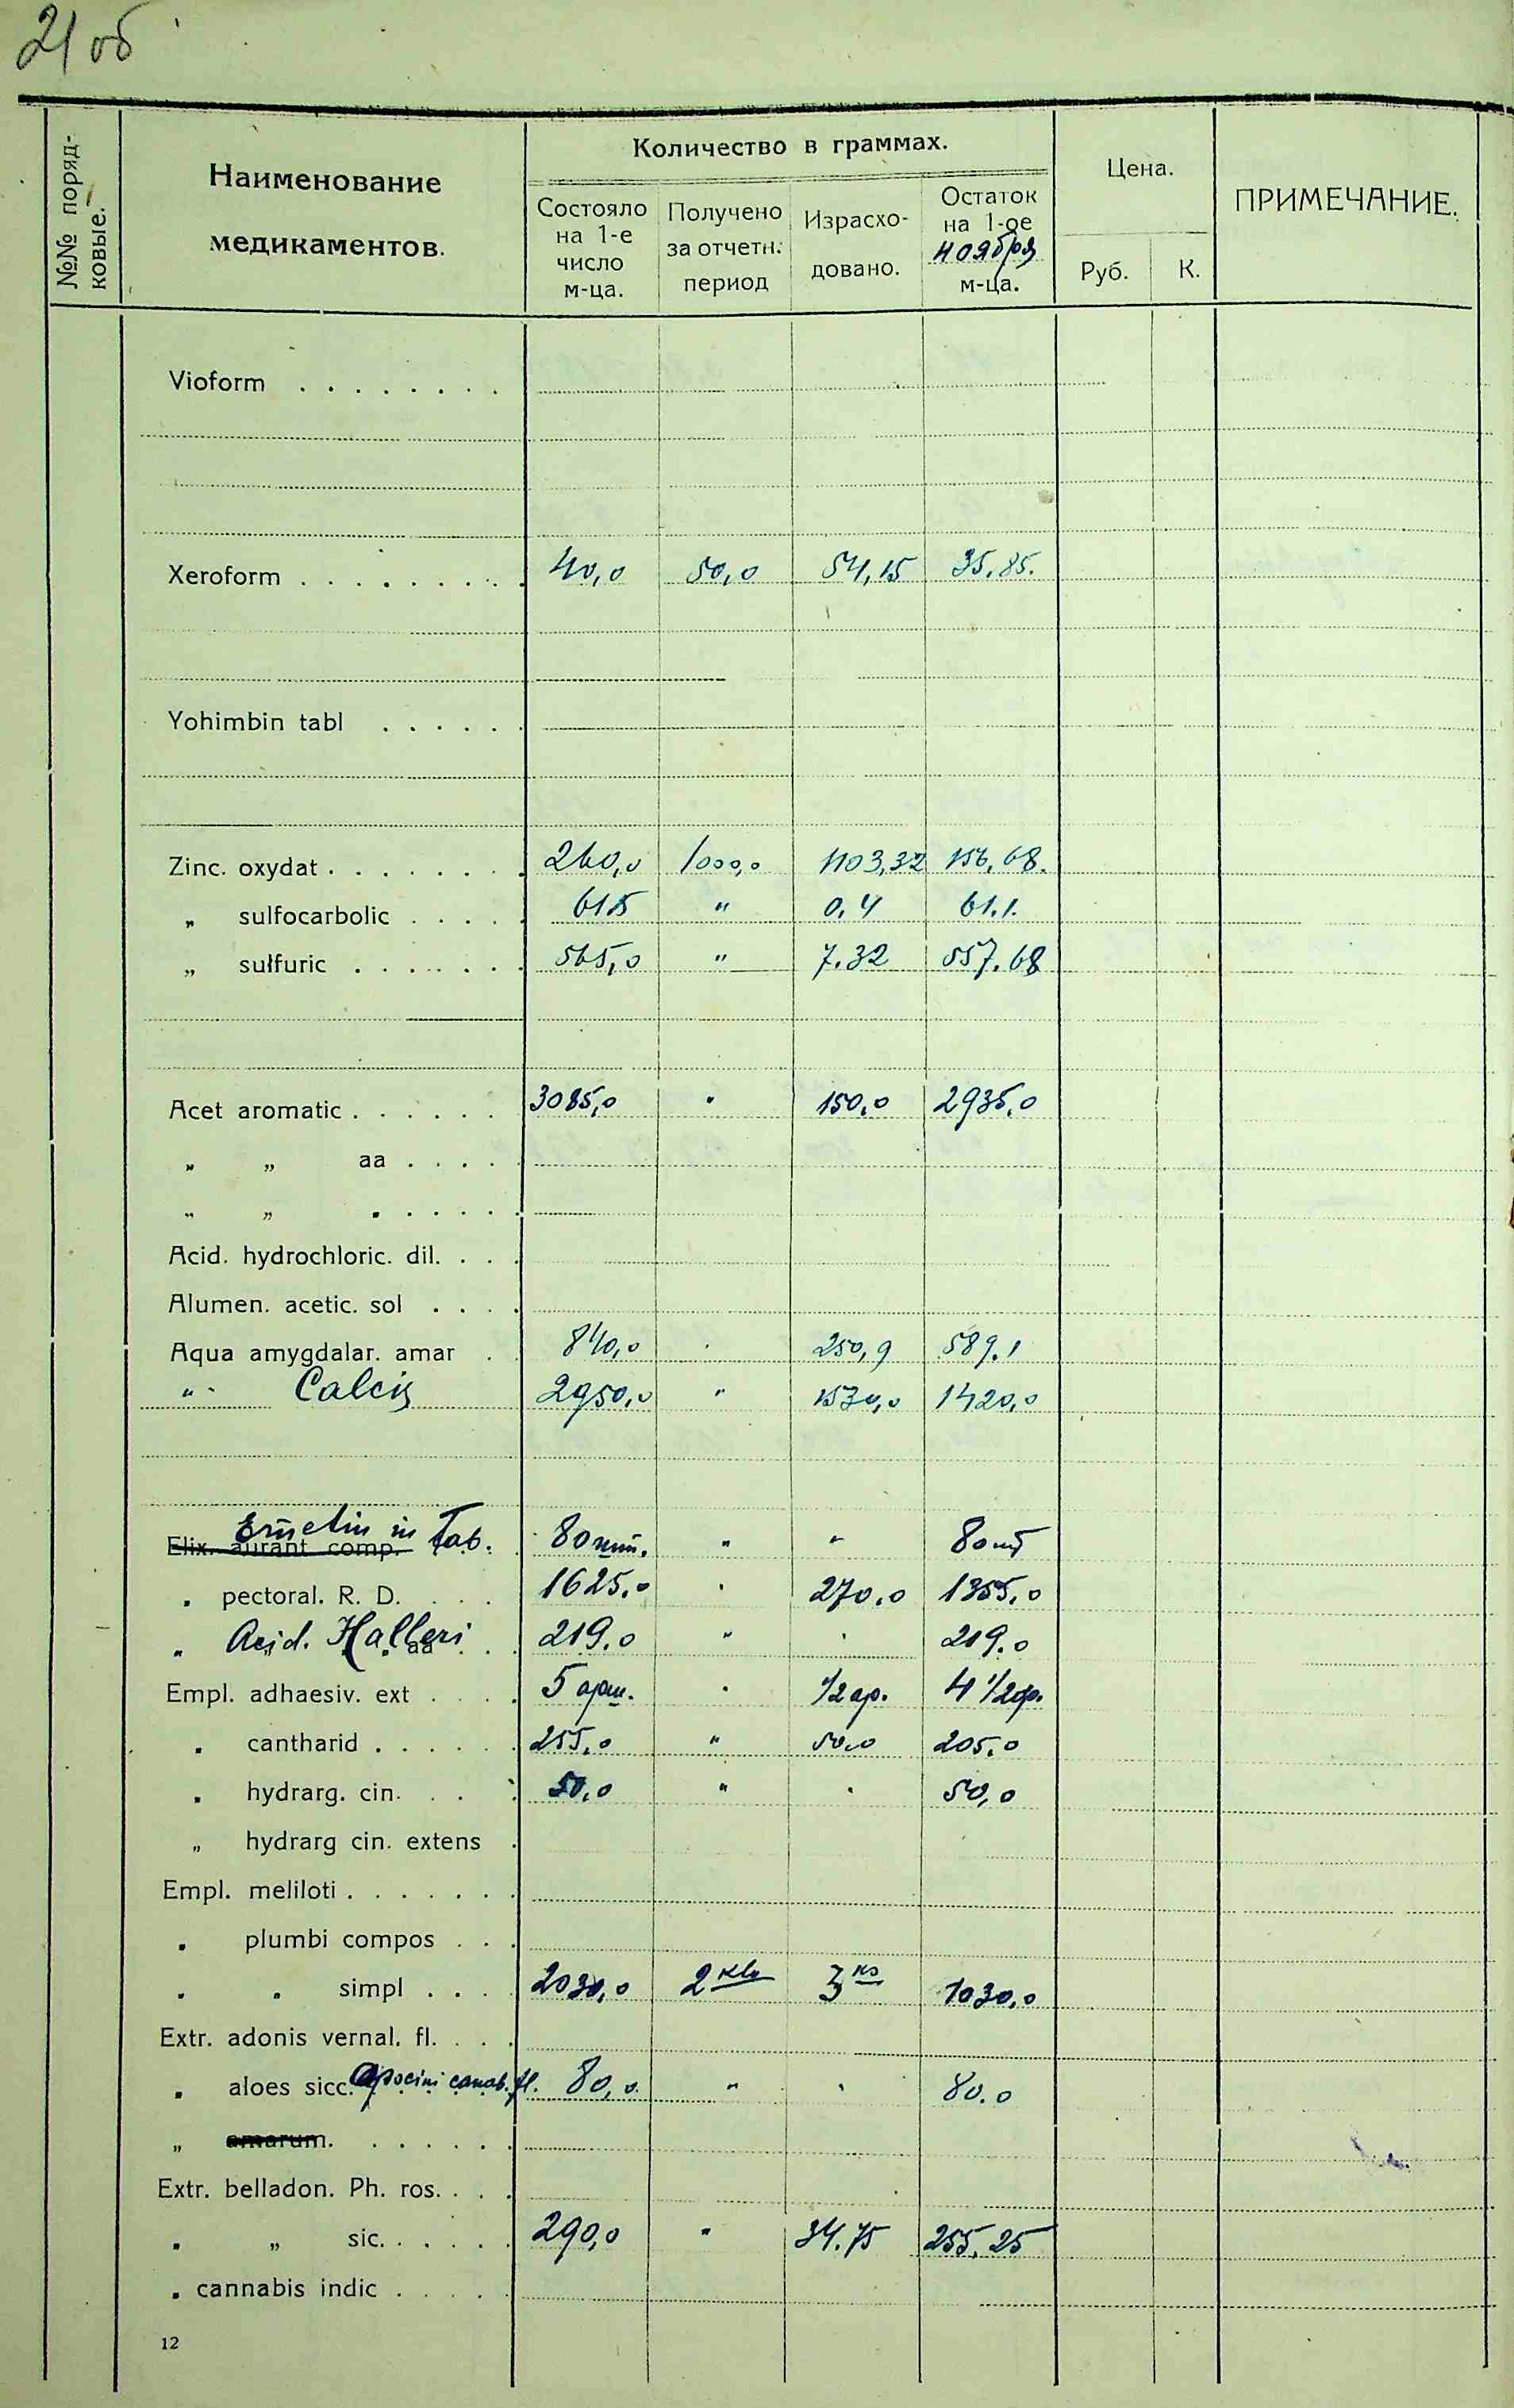 21 об
№№ поряд-
ковые.
Наименование
медикаментов.
Количество в граммах.
Состояло
на 1-е
число
м-ца.
Получено
за отчетн.
период
Израсхо-
довано.
Остаток
на 1-ое
ноября
м-ца.
Цена.
Руб. К.
ПРИМЕЧАНИЕ.
Vioform . . . . . . . .
Xeroform . . . . . . . . . 40,0 50,0 54,15 35.85.
Yohimbin tabl . . . . . .
Zinc. oxydat . . . . . . . . 260,0 1000,0 1103,32 156,68.
„ sulfocarbolic . . . . . 61,5 " 0,4 61.1.
„ sulfuric . . . . . . . 565,0 " 7.32 557.68
Acet aromatic . . . . . . 3085,0 " 150,0 2935,0
„ „ aa . . . . .
„ „ . . . . . .
Acid. hydrochloric. dil. . . .
Alumen. acetic. sol . . . .
Aqua amygdalar. amar . . 840,0 . 250,9 589.1
" Calcis 2950,0 " 1530,0 1420,0
Emetin in Tab.
Elix. aurant comp. 80 шт. " " 80 шт
„ pectoral. R. D. . . . 1625,0 . 270.0 1355,0
„ Acid. Halleri aa . . 219.0 " . 219.0
Empl. adhaesiv. ext . . . . 5 арш. . 1/2 ар. 4 1/2 ар.
„ cantharid . . . . . . 255,0 " 50,0 205,0
„ hydrarg. cin. . . . 50,0 " . 50,0
„ hydrarg cin. extens .
Empl. meliloti . . . . . . .
„ plumbi compos . . .
„ „ simpl . . . . 2030,0 2 klo 3 ко 1030,0
Extr. adonis vernal. fl. . . .
„ aloes sicc. apocini canab. fl. 80,0. " . 80.0
„ amarum. . . . . . .
Extr. belladon. Ph. ros. . . .
„ „ sic. . . . . . 290,0 " 34.75 255,25
„ cannabis indic . . . . .
12